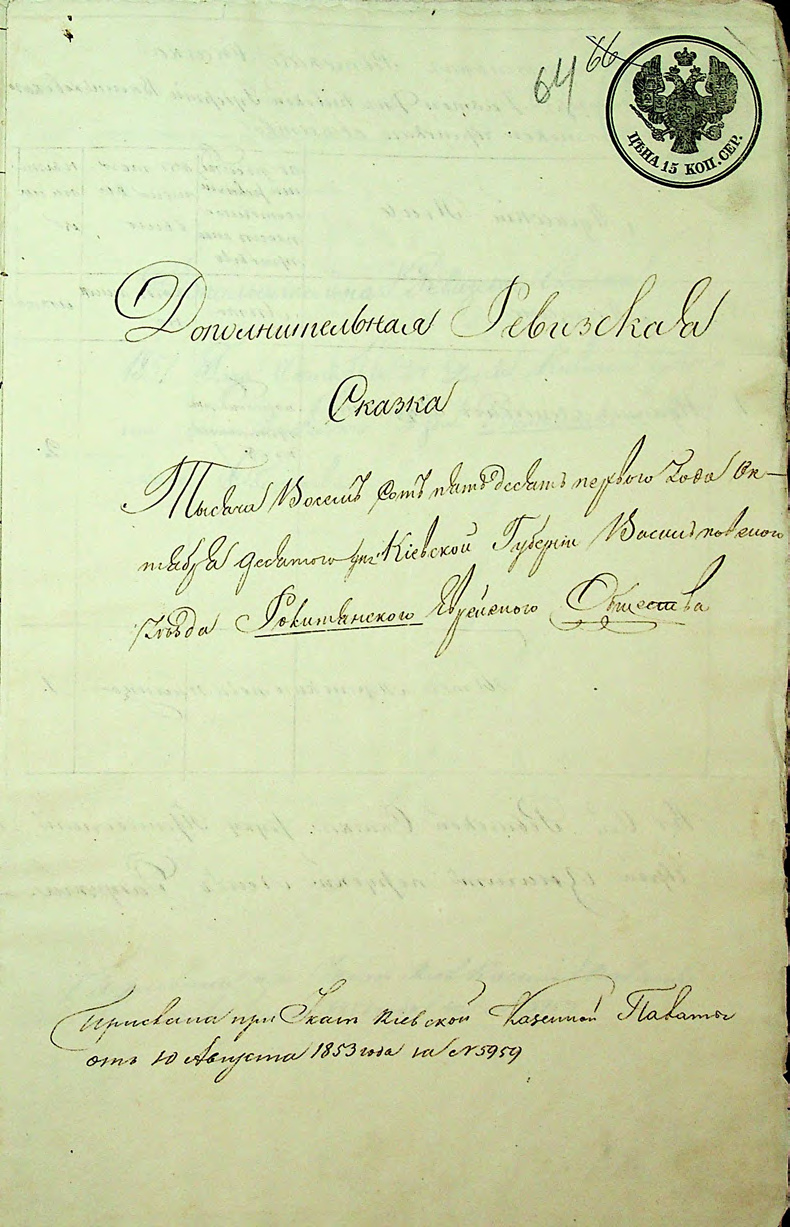 64 66
ЦѢНА 15 КОП. СЕР.
Дополнительная Ревизская
Сказка
Тысяча Восемь Сотъ пятьдесятъ первого Года Ок-
тября десятого дня Кіевской Губерніи Васильковского
Уѣзда Рокитянского Еврейского Общества
Прислана при Указѣ Кіевской Казенной Палаты
отъ 10 Августа 1853 года за № 5959